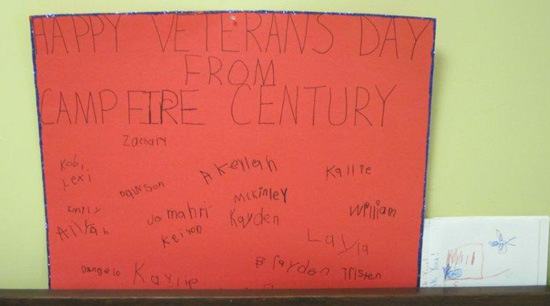 HAPPY VETERANS DAY
FROM
CAMP FIRE CENTURY
Zachary
Kobi
Lexi
Dawson
AKeelah
Kallie
McKinley
Emily
Aliyah
Jamahri
Kayden
William
Keison
Layla
Dangelo
Brayden
Tristen